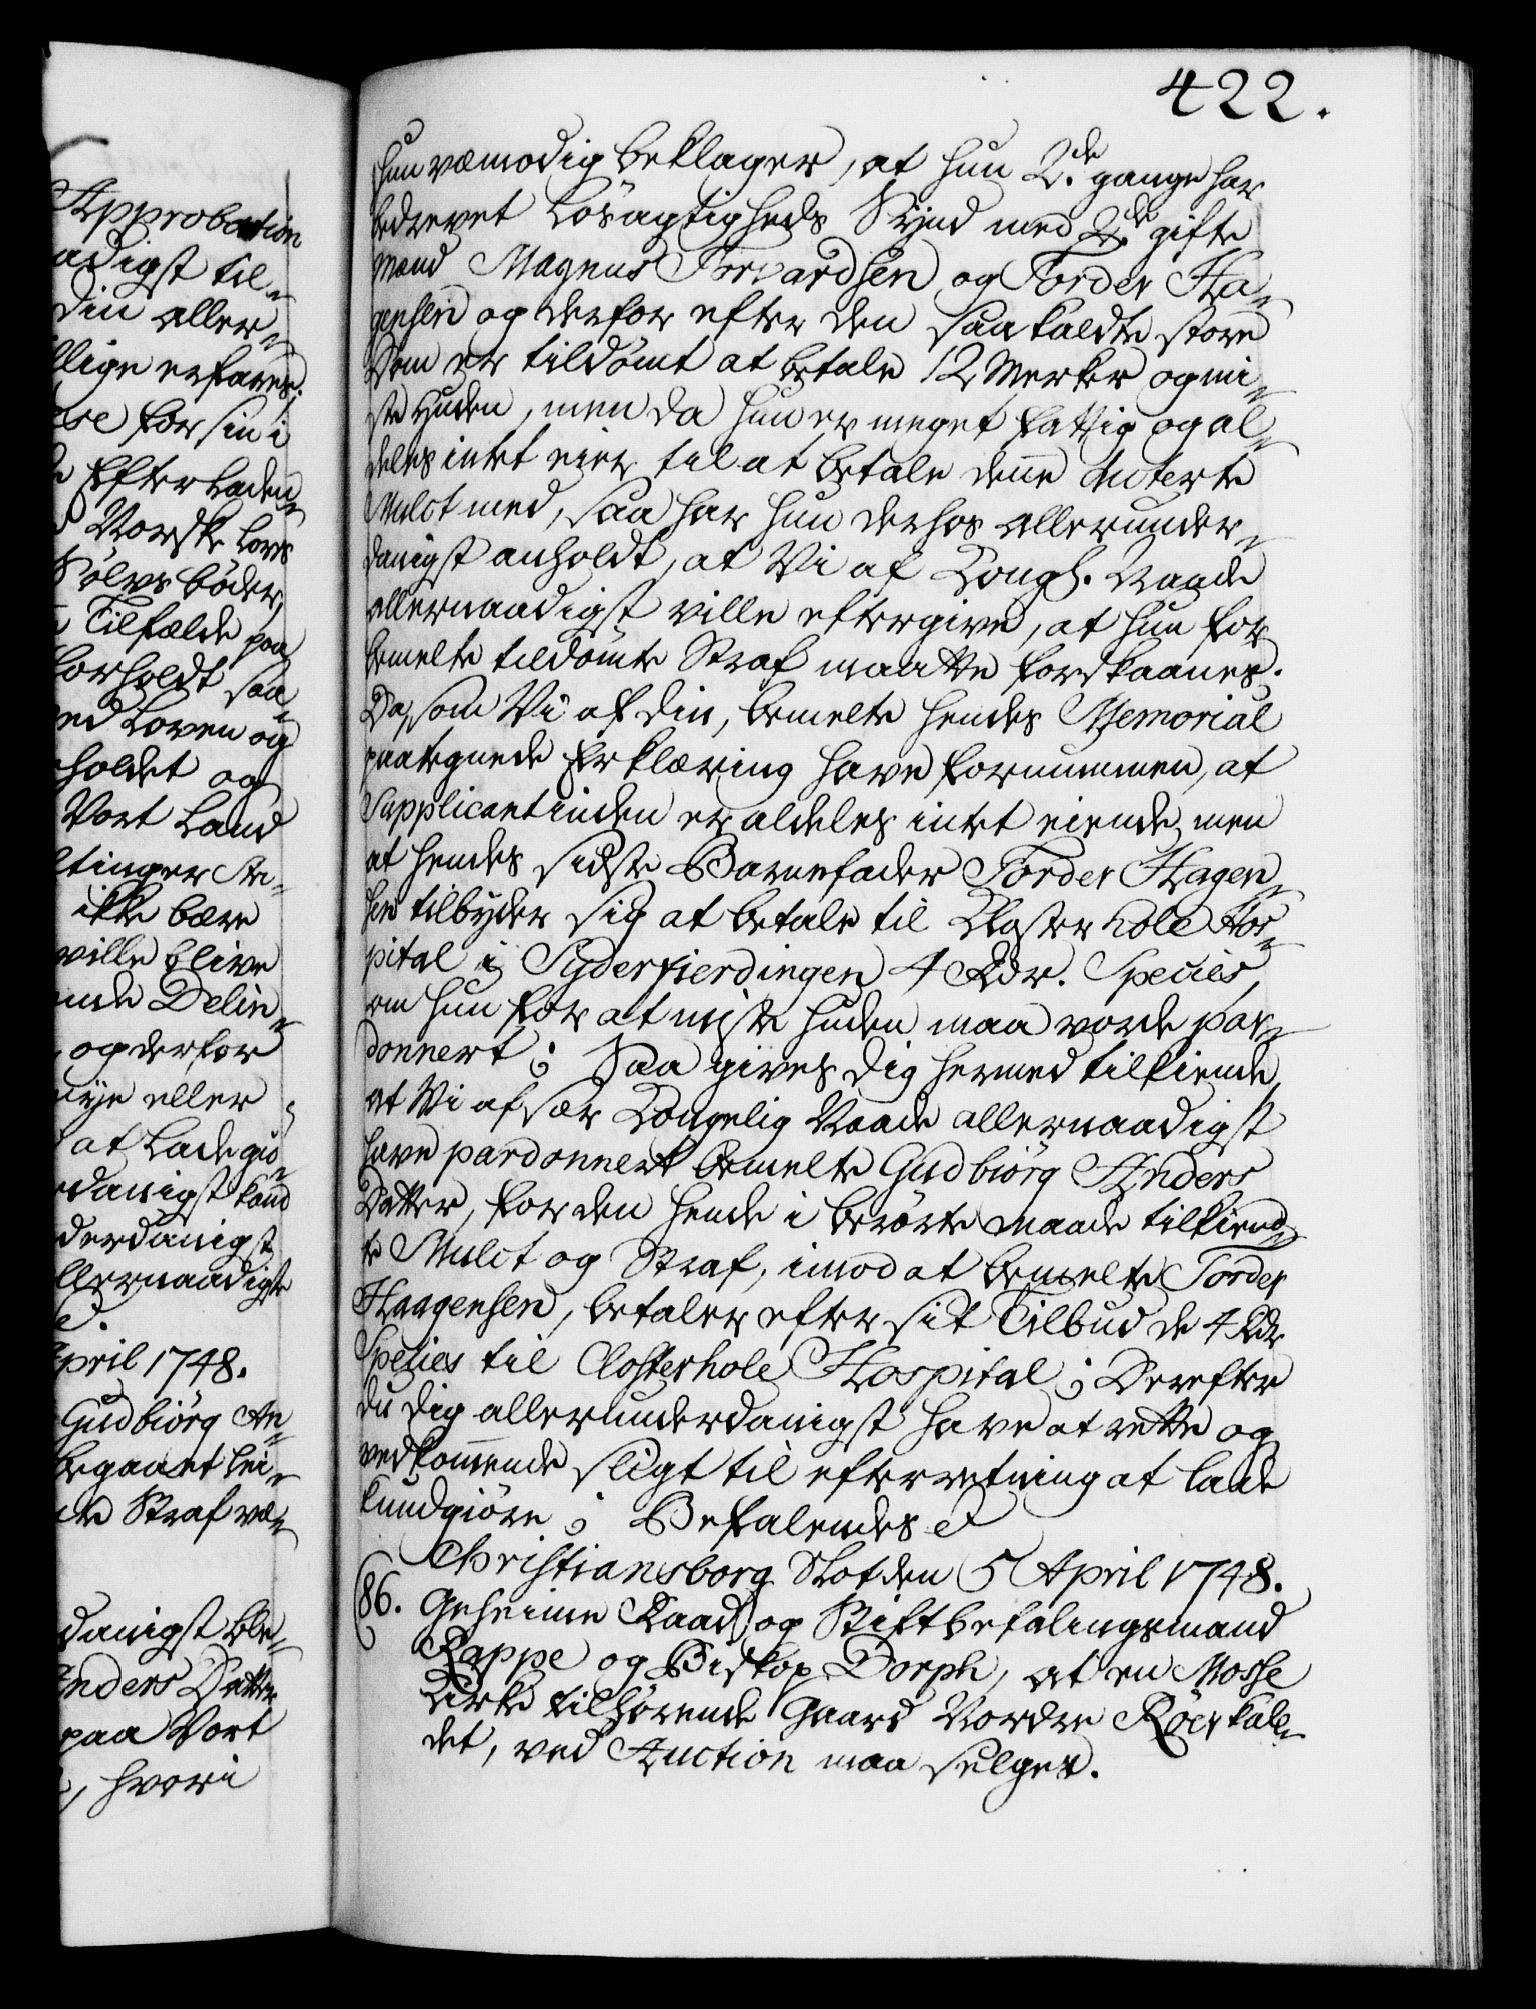 Approbation
adigst til-
din aller-
llige erfarer
else for sin i
de Efterladen-
s Norske Lovs
Sølvs bøder,
Tilfælde paa
forholdt saa-
ed Loven og
holdet og
Vort Land
ltinger
ikke bære
ville blive
ende Delin-
og derfor
nye eller
at Lade giø-
rdanigst
derdanigst
llernaadigste
April 1748.
Gudbiörg An-
begaaet Lei-
de Straf væ-
danigst
Anders Datter
paa Vort
, hvori
422.
hun væmodig beklager, at hun 2de gange har
bedrevet Løsagtigheds Synd med 2de gifte
Mænd Magnus Torvardsen og Torder Ha-
gensen og derfor efter den saa kaldte store
Dom er tildømt at betale 12 Merker og mi-
ste Huden, men da hun er meget fattig og al-
deles intet eier til at betale denne dicterte
Mulct med, saa har hun derhos allerunder-
danigst anholdt, at Vi af Kongl. Naade
allernaadigst ville eftergive, at hun for
bemelte tildømte Straf maatte forskaanes.
Da, som Vi af din, bemelte hendes Memorial
paategnede Erklæring have fornummen, at
Supplicantinden er aldeles intet eiende, men
at hendes sidste Barnefader Torder Hagen-
sen tilbyder sig at betale til Klosterhole Hos-
pital i Syderfierdingen 4 Rdr. Species,
om hun for at miste huden maa vorde par-
donnert; Saa gives dig hermed tilkiende,
at Vi af sær Kongelig Naade allernaadigst
have pardonnert bemelte Gudbiörg Anders
Datter, for den hende i berørte maade tilkiend-
te Mulct og Straf, imod at bemelte Torder
Haagensen, betaler efter sit Tilbud de 4 Rdr
Species til Closterhole Hospital; Derefter
du dig allerunderdanigst have at rette og
vedkommende sligt til efterretning at lade
kundgiøre; Befalendes &
Christiansborg Slot den 5 April 1748.
86. Geheime Raad og Stiftbefalingsmand
Rappe og Biskop Dorph, at en Mosse
Kirke tilhørende Gaard Nordre Röer kal-
det, ved Auction maa selges.